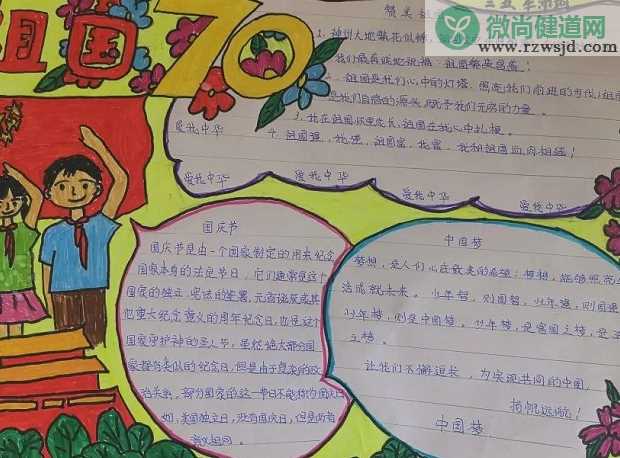 祖国70
微尚健道网
www.rzwsjd.com
赞美
1. 神州大地繁花似锦
2. 祖国是我们心中的灯塔
是我们自信的源泉
3. 我在祖国怀里成长，祖国在我心中扎根。
4. 祖国强，我强，祖国富，我富，我和祖国血肉相连！
爱我中华
爱我中华
爱我中华
爱我中华
爱我中华
国庆节
国庆节是由一个国家制定的用来纪念
国家本身的法定节日，它们通常是这个
国家的独立、宪法的签署、元首诞辰或其
他重大纪念意义的周年纪念日，也是这个
国家守护神的圣人节，虽然绝大部分国
家都有类似的纪念日，但是由于复杂的政
治关系，部分国家的这一节日不能称为国庆日
如，美国独立日，没有国庆日，但是两者
意义相同。
中国梦
梦想，是人们心底最美的希望；梦想，能够照亮
活成就未来。少年智，则国智，少年强，则国强
少年梦，则是中国梦。少年梦，是富国之梦，是
之梦。
让我们不懈追求，为实现共同的中国
扬帆远航！
中国梦